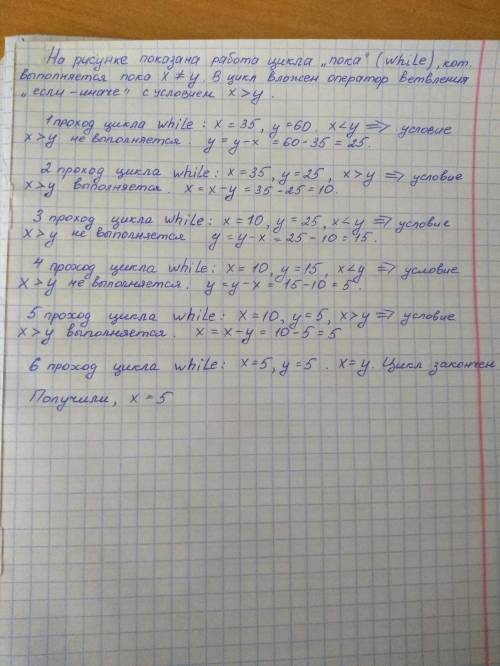 На рисунке показана работа цикла „пока" (while), кот.
выполняется пока x ≠ y. В цикл вложен оператор ветвления
„если-иначе" с условием x > y.
1 проход цикла while: x = 35, y = 60. x < y ⇒ условие
x > y не выполняется. y = y-x = 60-35 = 25.
2 проход цикла while: x = 35, y = 25, x > y ⇒ условие
x > y выполняется. x = x-y = 35-25 = 10.
3 проход цикла while: x = 10, y = 25, x < y ⇒ условие
x > y не выполняется y = y-x = 25-10 = 15.
4 проход цикла while: x = 10, y = 15, x < y ⇒ условие
x > y не выполняется. y = y-x = 15-10 = 5.
5 проход цикла while: x = 10, y = 5, x > y ⇒ условие
x > y выполняется. x = x-y = 10-5 = 5
6 проход цикла while: x = 5, y = 5. x = y. Цикл закончен
Получили, x = 5